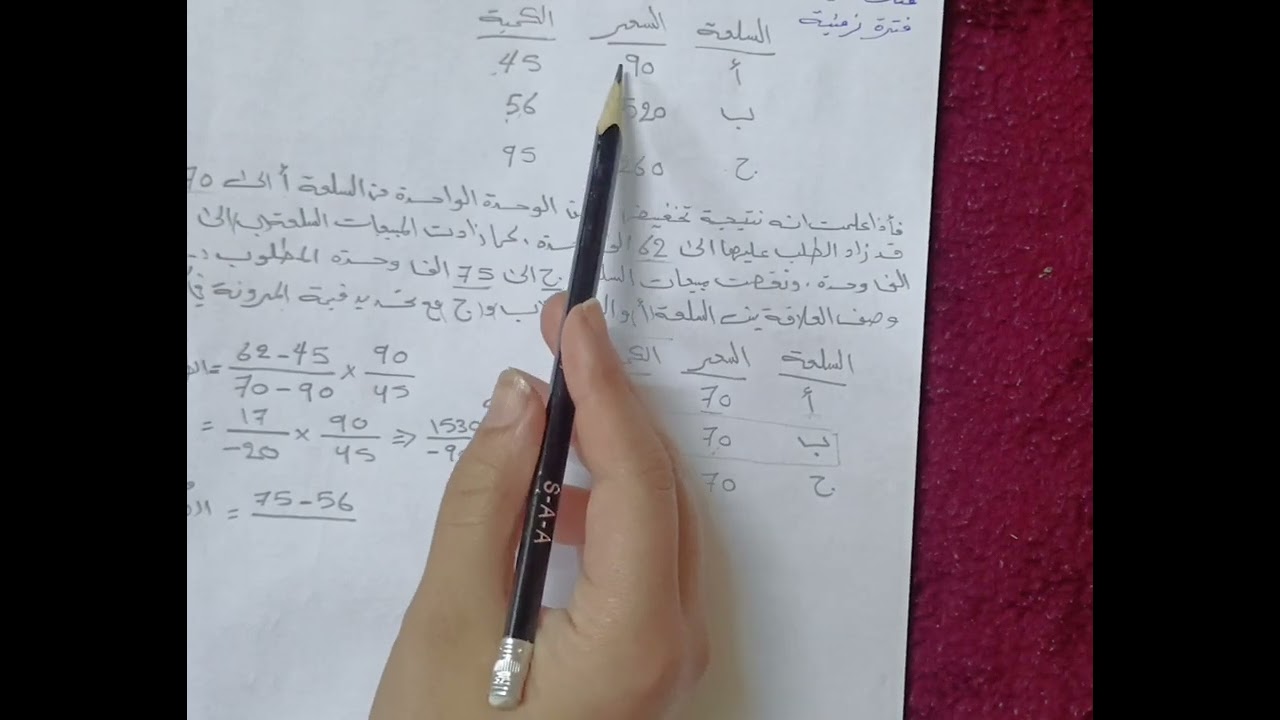 فترة زمنية
السلعة السعر الكمية
أ 90 45
ب 520 56
ج 260 95
فأذا علمت انه نتيجة تخفيض الوحدة الواحدة من السلعة أ الى 70
قد زاد الطلب عليها الى 62 وحدة، كما زادت المبيعات السلعة ب الى
الف وحدة، ونقصت مبيعات ج الى 75 الف وحدة المطلوب
وصف العلاقة بين السلعة (أ) و ب و ج مع تحديد قيمة المرونة في
السلعة السعر
أ 70
ب 70
ج 70
= 62 - 45 / 70 - 90 × 90 / 45
= 17 / -20 × 90 / 45 => 1530
= 75 - 56
S-A-A